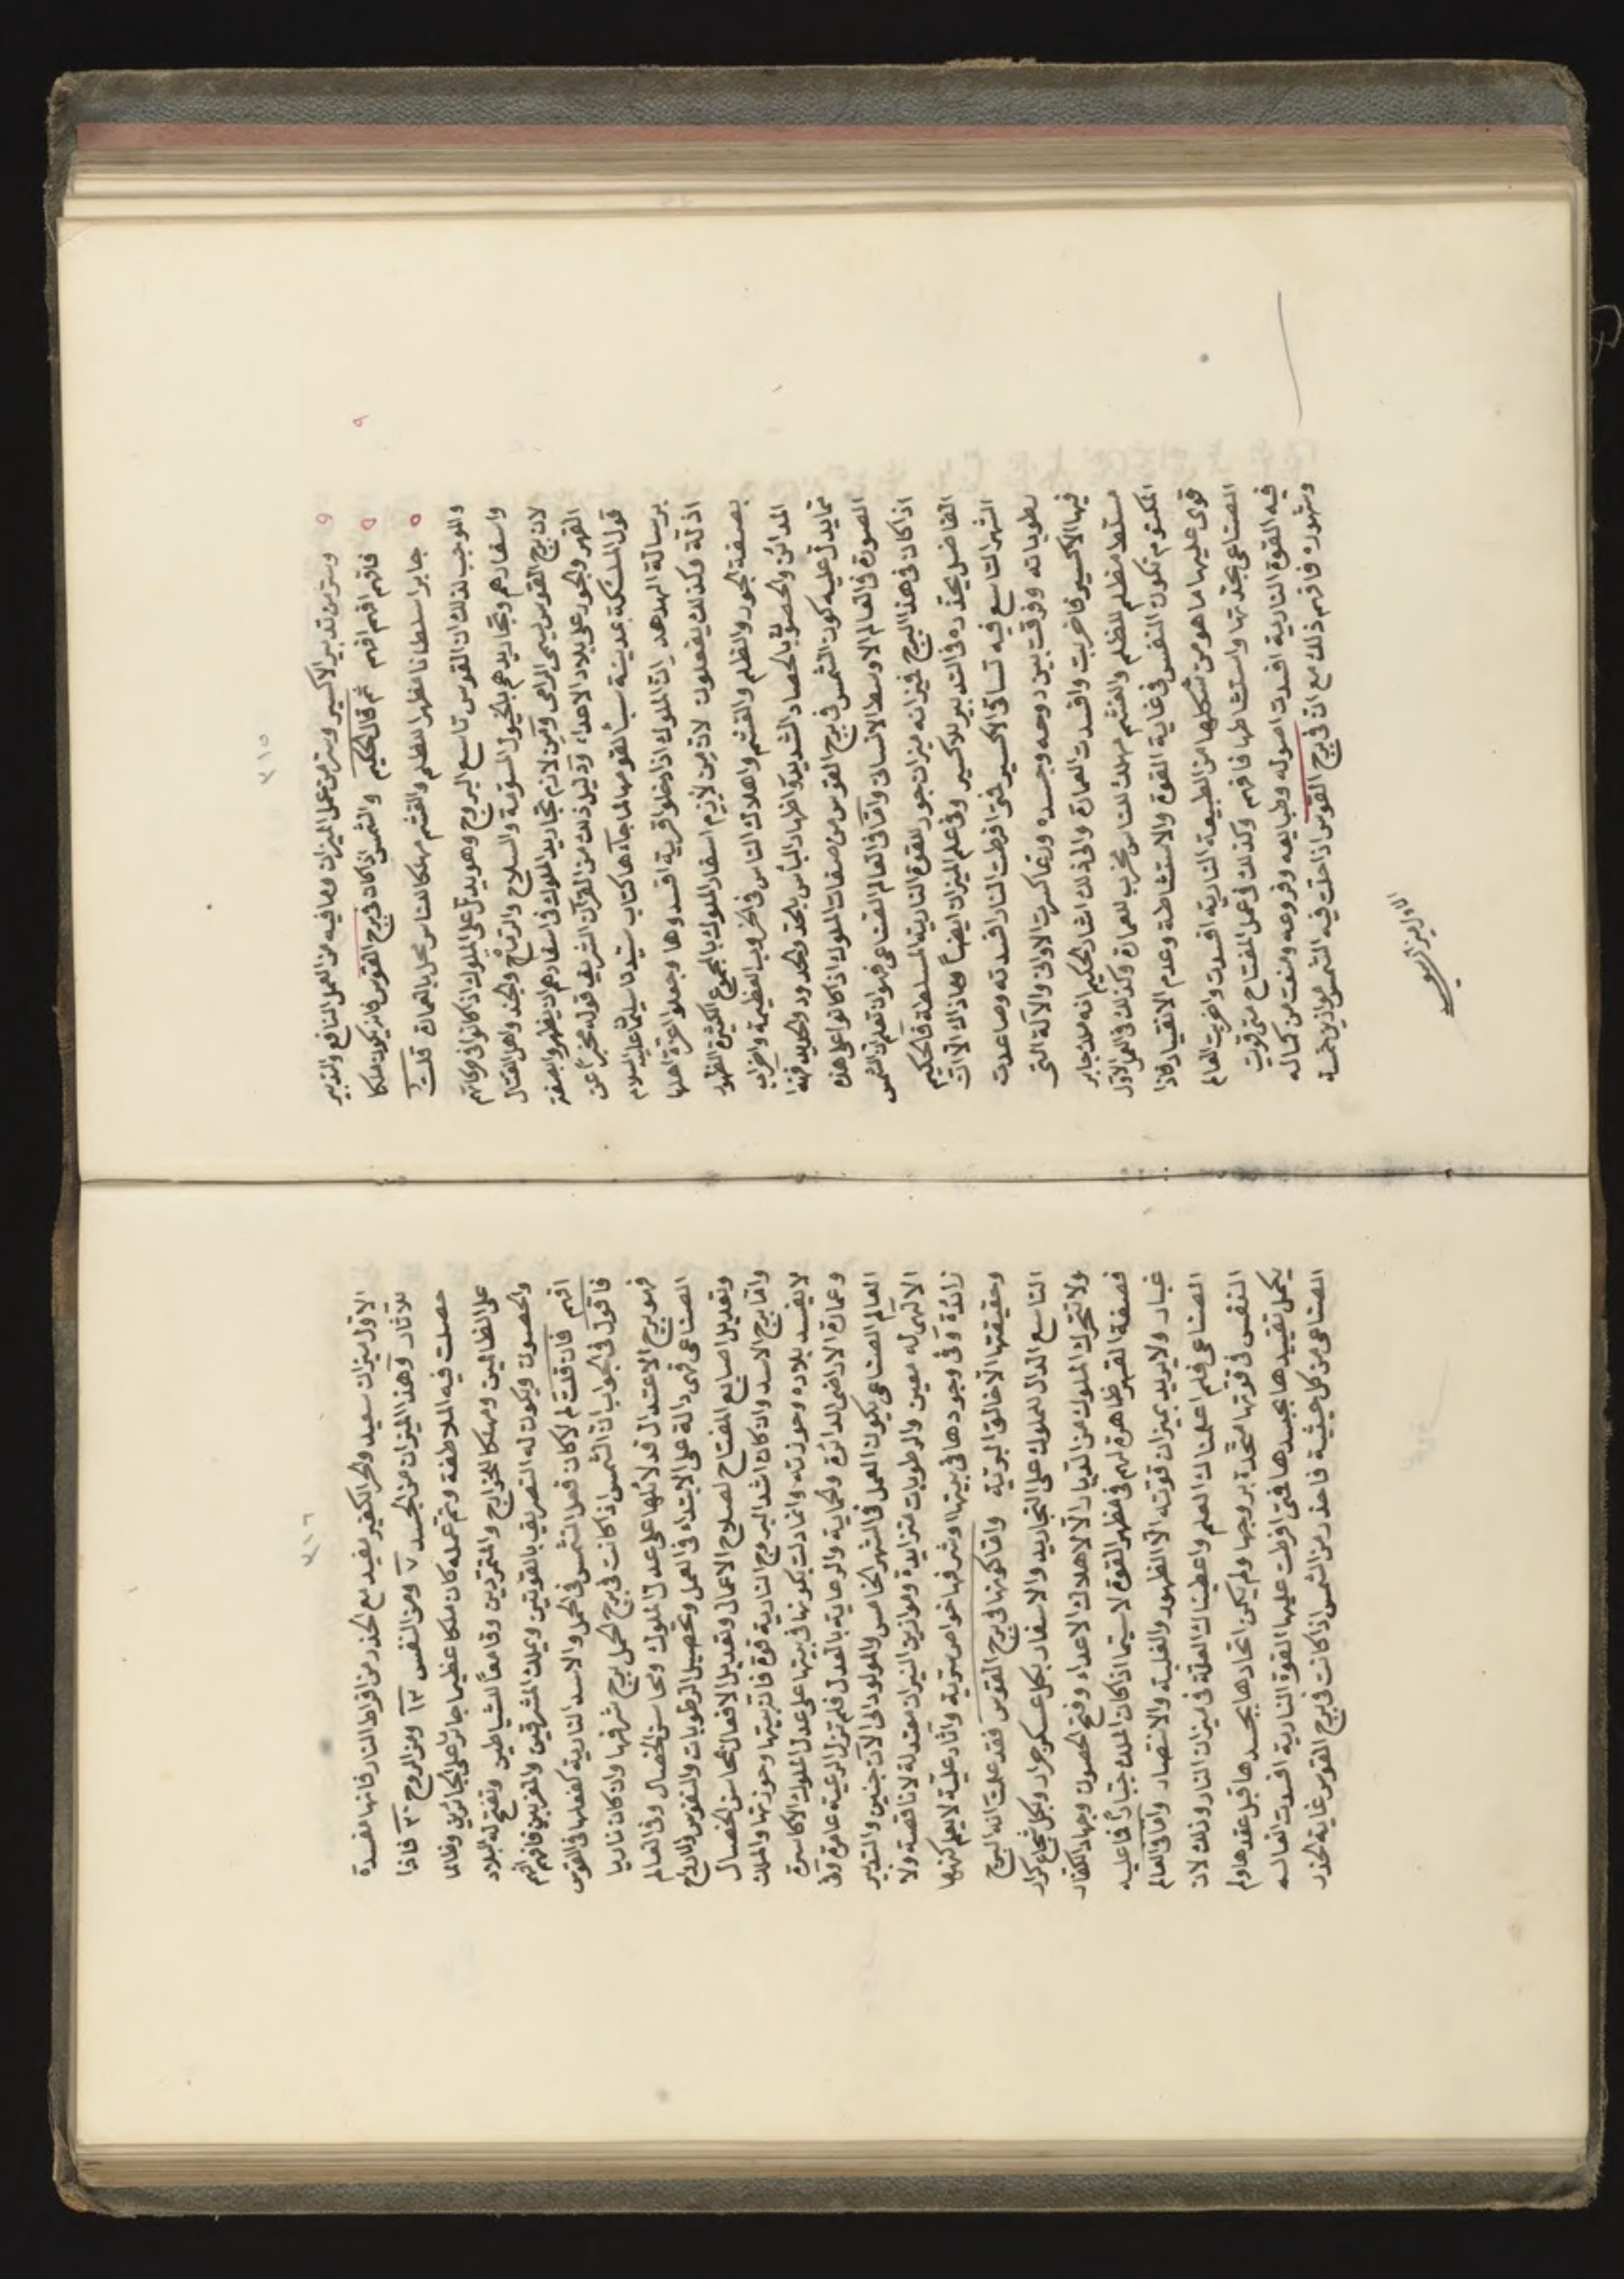 ٣١٥
وسّر من تدبير الاكسير وسّر من عمل الميزان وما فيه من العمل النافع والتدبير
فافهم افهم افهم ثم قال الحكيم والشمس اذا كان في برج القوس فانه يكون ملكا
جابرا سلطانا مظهرا للظلم والغشم مهلكا للناس مخل بالعمارة قلت
والموجب لذلك ان القوس تاسع البروج وهو يدل على الملوك اذا كانوا في حركاتهم
واسفارهم وتجاريدهم بالخيول المسومة والسلاح والرماح والجند واهل القتال
لان برج القوس يسمى الرامى ومن لازم تجاريد الملوك في اسفارهم ان يظهروا بصفة
القهر والجور على بلاد الاعداء ودليل ذلك من القرآن الشريف قوله مخبرا عن
قول الملكة بمدينة سبأ لقومها لما جاءها كتاب سيدنا سليمان عليه السلام
برسالة الهدهد ان الملوك اذا دخلوا قرية افسدوها وجعلوا اعزة اهلها
اذلة وكذلك يفعلون لان من لازم اسفار الملوك بالجموع الكثيرة الظهور
بصفة الجور والظلم والغشم واهلاك الناس في الحروب العظيمة واخراب
المدائن والحصون بالحصاد الشديد واظهار البأس بالحد والحدود والحديد فهذا
مما يدل عليه كون الشمس في برج القوس من صفات الملوك اذا كانوا على هذه
الصورة في العالم الاوسط الانساني وامّا في العالم الصناعي فهو ان تعلم ان الشمس
اذا كان في هذا البرج فميزانه ميزان جور للقوة النارية المسلطة فالحكيم
الفاضل يحذره في التدبير للاكسير وفي علم الميزان ايضا وما ذاك الا ان
الشهر التاسع فيه تساقى الاكسير فمتى افرطت النار افسدته وصاعدت
رطوباته وفرقت بين روحه وجسده وربما كسرت الاواني والآلة التي
فيها الاكسير فاخربت وافسدت العمارة والى ذلك اشار الحكيم انه ملك جابر
متسلط مظلم للظلم والغشم مهلك للناس مخرب للعمارة وكذلك في العمل الاول
المكتوم تكون النفس في غاية القوة والاستشاطة وعدم الانقياد فاذا
قوى عليها ما هو من شكلها من الطبيعة النارية افسدت واخربت العالم
الصناعي بحدتها واستشاطها فافهم وكذلك في عمل المفتاح متى قويت
فيه القوة النارية افسدت اصوله وطبايعه وفروعه ومنعت من كماله
وشهوده فافهم ذلك مع ان في برج القوس اذا حلت فيه الشمس موازين خمسة
الاول ميزان سعيد
٣١٦
الاول ميزان سعيد والحر الكثير يفيد مع الحذر من افراط النار فانها المفسدة
للآثار وهذا الميزان من الجسد ٧ ومن النفس ١٣ ومن الروح ٣٠ فاذا
حصلت فيه الملاطفة وتم عمله كان ملكا عظيما جائرا على الجائرين وظالما
على الظالمين ومهلكا للخوارج والمتمردين وقامعا للشياطين وتفتح له البلاد
والحصون ويكون له التصريف بالقوتين ويملك المشرقين والمغربين فافهم ثم
افهم فان قلت لم لا كان فعل الشمس في الحمل والاسد النارية كفعلها في القوس
فاقول في الجواب ان الشمس اذا كانت في برج الحمل برج شرفها وان كان ناريا
فهو برج الاعتدال فدلائلها على عدل الملوك ومحاسن الخصال وفي العالم
الصناعي فهي دالة على الابتداء في العمل وتحصيل الرطوبات والنفوس والارواح
وتعديل اصابع المفتاح لصلاح الاعمال وتعديل الافعال ومحاسن الخصال
وامّا برج الاسد وان كان اشد البروج النارية قوة فانه بيتها وحوزتها والملك
لا يفسد بلاده وحوزته وانما دلت بكونها في بيتها على عدل الملوك الاكاسرة
وعمارة الاراضي الدائرة والحماية والرعاية بالعدل فلم تزل الرعية عامرة وفي
العالم الصناعي يكون العمل في الشهر الخامس والمولود الى الآن جنين والتدبير
الالهي له معين والرطوبات متزايدة وموازين النيران معتدلة لا ناقصة ولا
زائدة وفي وجودها في بيتها وشرفها خواص سرية وآثار علية لا يعلم كنهها
وحقيقتها الا خالق البرية وامّا كونها في برج القوس فقد علمت انه البرج
التاسع الدال للملوك على التجاريد والاسفار بكل عسكر جرار وبكل شجاع كرار
ولا تتحرك الملوك من الديار الا لاهلاك الاعداء وفتح الحصون وجهاد الكفار
فصفة القهر ظاهرة لهم في مظهر القوة لا سيما اذا كان الملك جبارا فاعليه
غبار ولا يريد بميزان قوته الا الظهور والغلبة والانتصار وامّا في العالم
الصناعي فلم اعلمناك العلم واعطيناك العلة في ميزان النار وذلك لان
النفس في قوتها متحدة بروحها ولم يكن اتحادها بجسدها قبل عقدها ولم
يكمل تقييدها بجسدها فمتى افرطت عليها القوة النارية افسدت العالم
الصناعي من كل حيثية فاحذر من الشمس اذا كانت في برج القوس غاية الحذر